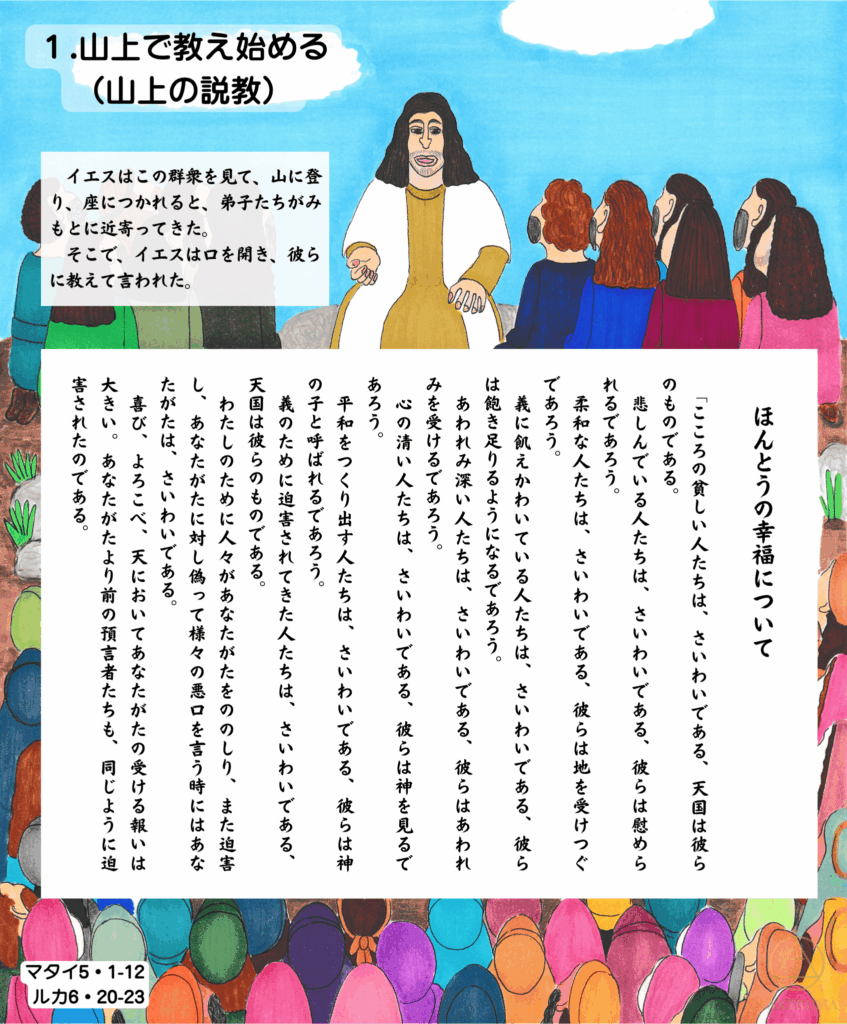 １.山上で教え始める
（山上の説教）
　イエスはこの群衆を見て、山に登
り、座につかれると、弟子たちがみ
もとに近寄ってきた。
　そこで、イエスは口を開き、彼ら
に教えて言われた。
ほんとうの幸福について
「こころの貧しい人たちは、さいわいである、天国は彼ら
のものである。
　悲しんでいる人たちは、さいわいである、彼らは慰めら
れるであろう。
　柔和な人たちは、さいわいである、彼らは地を受けつぐ
であろう。
　義に飢えかわいている人たちは、さいわいである、彼ら
は飽き足りるようになるであろう。
　あわれみ深い人たちは、さいわいである、彼らはあわれ
みを受けるであろう。
　心の清い人たちは、さいわいである、彼らは神を見るで
あろう。
　平和をつくり出す人たちは、さいわいである、彼らは神
の子と呼ばれるであろう。
　義のために迫害されてきた人たちは、さいわいである、
天国は彼らのものである。
　わたしのために人々があなたがたをののしり、また迫害
し、あなたがたに対し偽って様々の悪口を言う時にはあな
たがたは、さいわいである。
　喜び、よろこべ、天においてあなたがたの受ける報いは
大きい。あなたがたより前の預言者たちも、同じように迫
害されたのである。
マタイ5・1-12
ルカ6・20-23